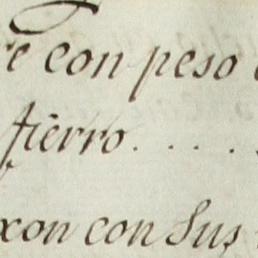 e con peso
fierro. . . . .
xon con Sus